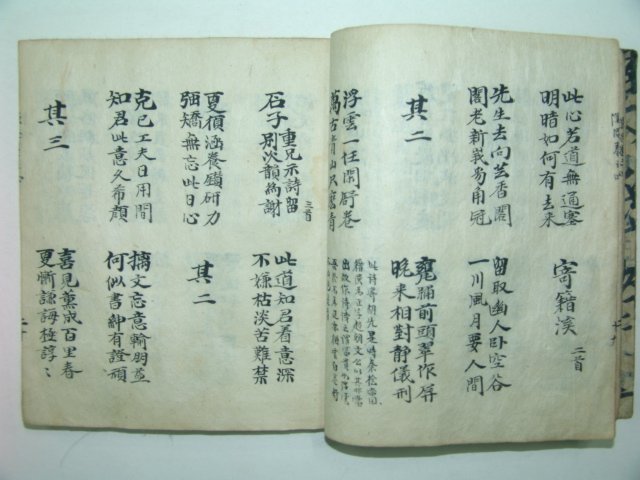 此心若道無通塞
明暗如何有去來
寄籍溪 二首
先生去向芸香閣
閣老新峩豸角冠
留取幽人卧空谷
一川風月要人間
其二
甕牖前頭翠作屏
晩來相對靜儀刑
浮雲一任閑舒卷
萬古青山只麽青
石子重兄示詩留別次韻爲謝 三首
此道知君看意深
不嫌枯淡苦難禁
更須涵養鑽研力
强矯無忘此日心
其二
克己工夫日用間
知君此意久希顔
摛文忘意輸朋益
何似書紳有證頑
其三
喜見薰成百里春
更慚謙誨極諄〻